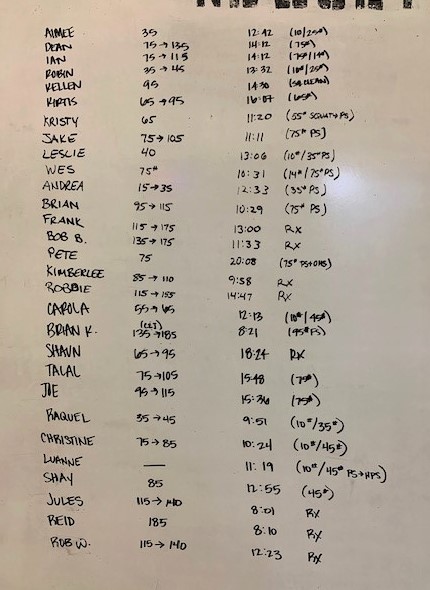 AIMEE 35 12:42 (10/25#)
DEAN 75→135 14:12 (75#)
IAN 75→115 14:12 (75#/14#)
ROBIN 35→45 13:32 (10#/25#)
KELLEN 95 14:30
KURTIS 65→95 16:07 (65#)
KRISTY 65 11:20 (55# SQUAT+PS)
JAKE 75→105 11:11 (75# PS)
LESLIE 40 13:06 (10#/35# PS)
WES 75# 10:31 (14#/75# PS)
ANDREA 15→35 12:33 (35# PS)
BRIAN 95→115 10:29 (75# PS)
FRANK 115→175 13:00 RX
BOB B. 135→175 11:33 RX
PETE 75 20:08 (75# PS+OHS)
KIMBERLEE 85→110 9:58 RX
ROBBIE 115→155 14:47 RX
CAROLA 55→65 12:13 (10#/45#)
BRIAN K. 135→185 8:21 (95# PS)
SHAUN 65→95 18:24 RX
TALAL 75→105 15:48 (75#)
JOE 95→115 15:36 (75#)
RAQUEL 35→45 9:51 (10#/35#)
CHRISTINE 75→85 10:24 (10#/45#)
LUANNE — 11:19 (10#/45# PS+HPS)
SHAY 85 12:55 (45#)
JULES 115→140 8:01 RX
REID 185 8:10 RX
ROB W. 115→140 12:23 RX